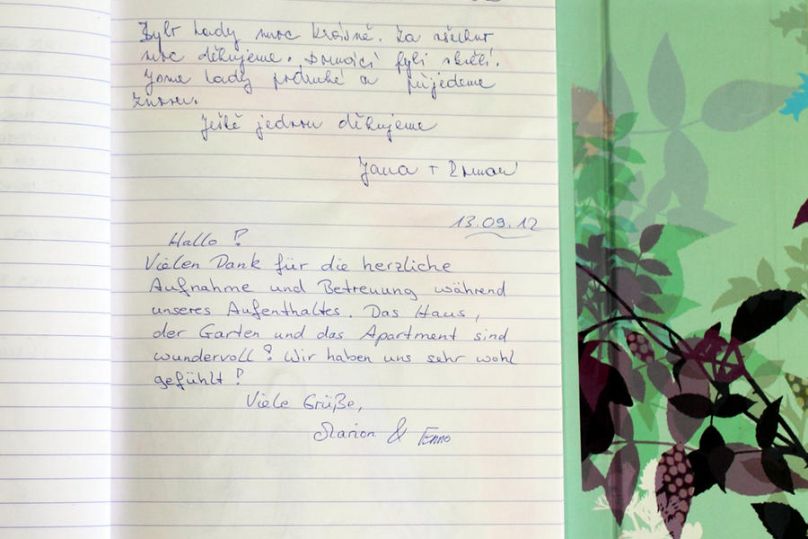 Bylo tady moc krásně. Za všechno
moc děkujeme. Domácí byli skvělí.
Jsme tady podruhé a přijedeme
znovu.
Ještě jednou děkujeme
Jana +
13.09.12
Hallo!
Vielen Dank für die herzliche
Aufnahme und Betreuung während
unseres Aufenthaltes. Das Haus,
der Garten und das Apartment sind
wundervoll! Wir haben uns sehr wohl
gefühlt!
Viele Grüße,
Marion & Enno